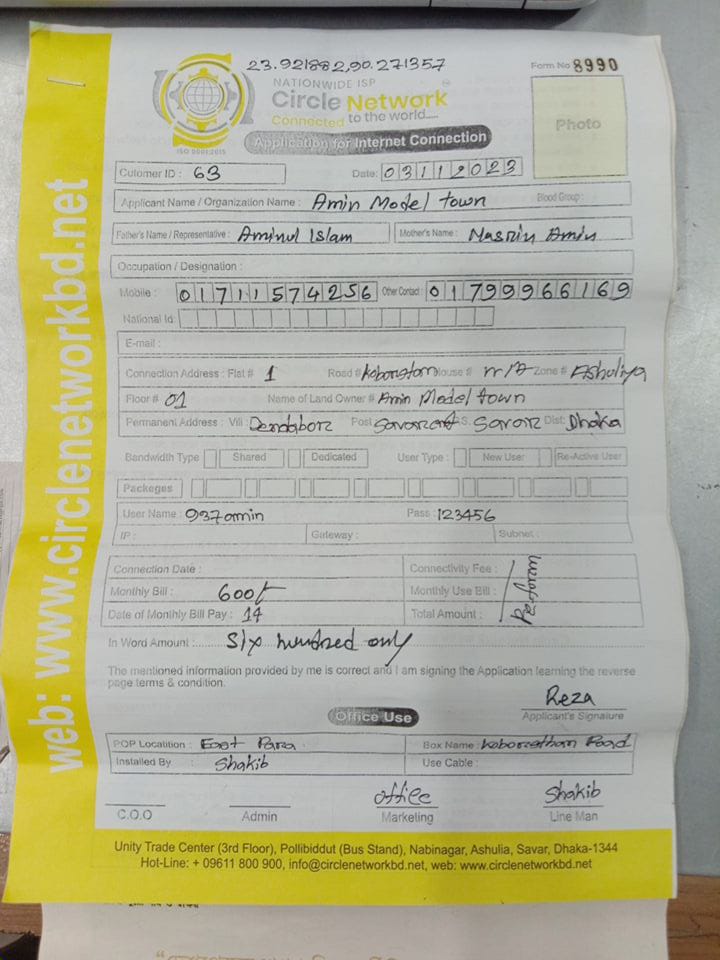 23.921882,90.271357
Form No 8990
NATIONWIDE ISP
Circle Network
Connected to the world.....
ISO 9001:2015
Application for Internet Connection
Photo
Cutomer ID : 63 Date: 03112023
Applicant Name / Organization Name : Amin Model town Blood Group :
Father's Name / Representative : Aminul Islam Mother's Name : Nasrin Amin
Occupation / Designation :
Mobile : 01711574256 Other Contact : 01799966169
National Id:
E-mail :
Connection Address : Flat # 1 Road # House # n/a Zone # Ashuliya
Floor # 01 Name of Land Owner # Amin Model town
Permanent Address : Vill Dendabor Post Savar P.S. Savar Dist: Dhaka
Bandwidth Type Shared Dedicated User Type : New User Re-Active User
Packeges
User Name : 937amin Pass : 123456
IP : Gateway : Subnet :
Connection Date : Connectivity Fee :
Monthly Bill : 600/- Monthly Use Bill :
Date of Monthly Bill Pay : 14 Total Amount :
In Word Amount : Six hundred only
The mentioned information provided by me is correct and I am signing the Application learning the reverse
page terms & condition.
Reza
Applicant's Signature
Office Use
POP Locatition : East Para Box Name : Road
Installed By : Shakib Use Cable :
office Shakib
C.O.O Admin Marketing Line Man
Unity Trade Center (3rd Floor), Pollibiddut (Bus Stand), Nabinagar, Ashulia, Savar, Dhaka-1344
Hot-Line: + 09611 800 900, info@circlenetworkbd.net, web: www.circlenetworkbd.net
web: www.circlenetworkbd.net